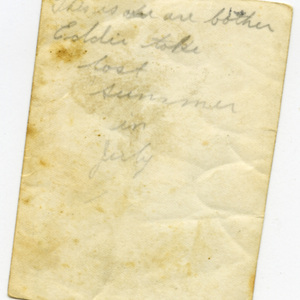 This is are bother
Eddie toke
last
summer
in
July